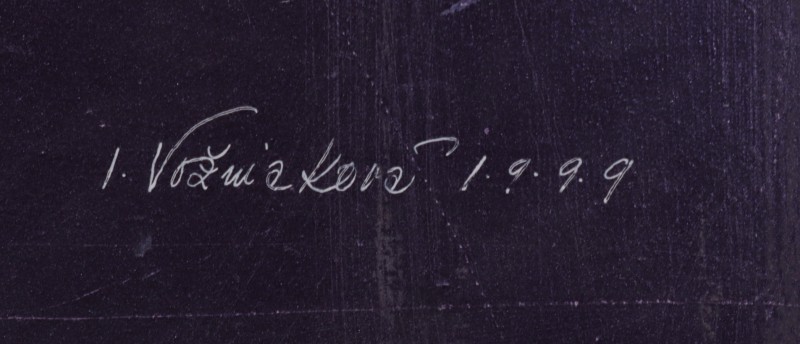 I. Vožniaková 1.9.9.9